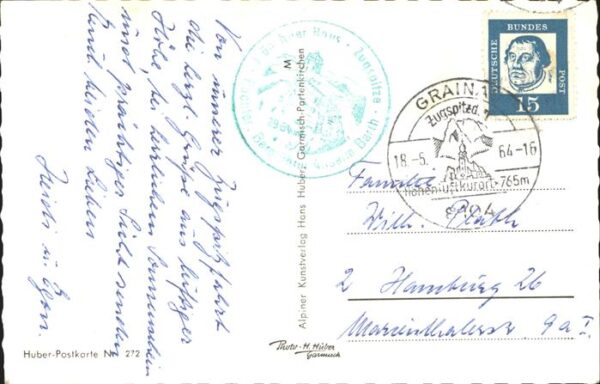 Von unserer Zugspitzfahrt
die herzl. Grüße aus luftiger
Höhe, bei herrlichem Sonnenschein
und prächtiger Sicht senden
Euch beiden Lieben
Huber-Postkarte Nr. 272
Alpiner Kunstverlag Hans Huber, Garmisch-Partenkirchen
M
Photo-H. Huber
Garmisch
Haus · Zugspitze
DEUTSCHE
BUNDES
POST
15
GRAIN
Zugspitzd.
18.-5.
64-16
Höhenluftkurort 765m
8104
Familie
Wilh.
2 Hamburg 26
Marienthalerstr. 9a I